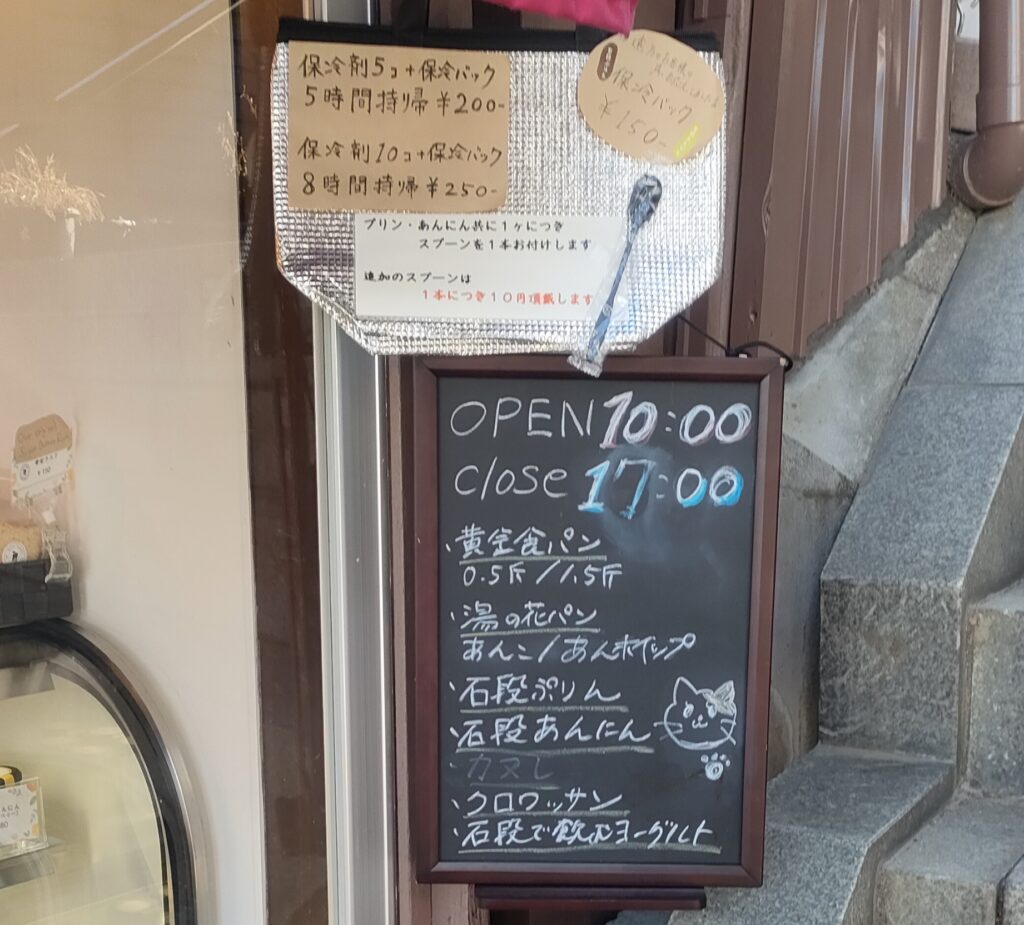 保冷剤5コ+保冷パック
5時間持帰¥200-
保冷剤10コ+保冷パック
8時間持帰¥250-
保冷パック
¥150-
プリン・あんにん共に1ヶにつき
スプーンを1本お付けします
追加のスプーンは
1本につき10円頂戴します
OPEN 10:00
close 17:00
・黄金食パン
0.5斤/1.5斤
・湯の花パン
あんこ/あんホイップ
・石段ぷりん
・石段あんにん
・カヌレ
・クロワッサン
・石段で飲むヨーグルト